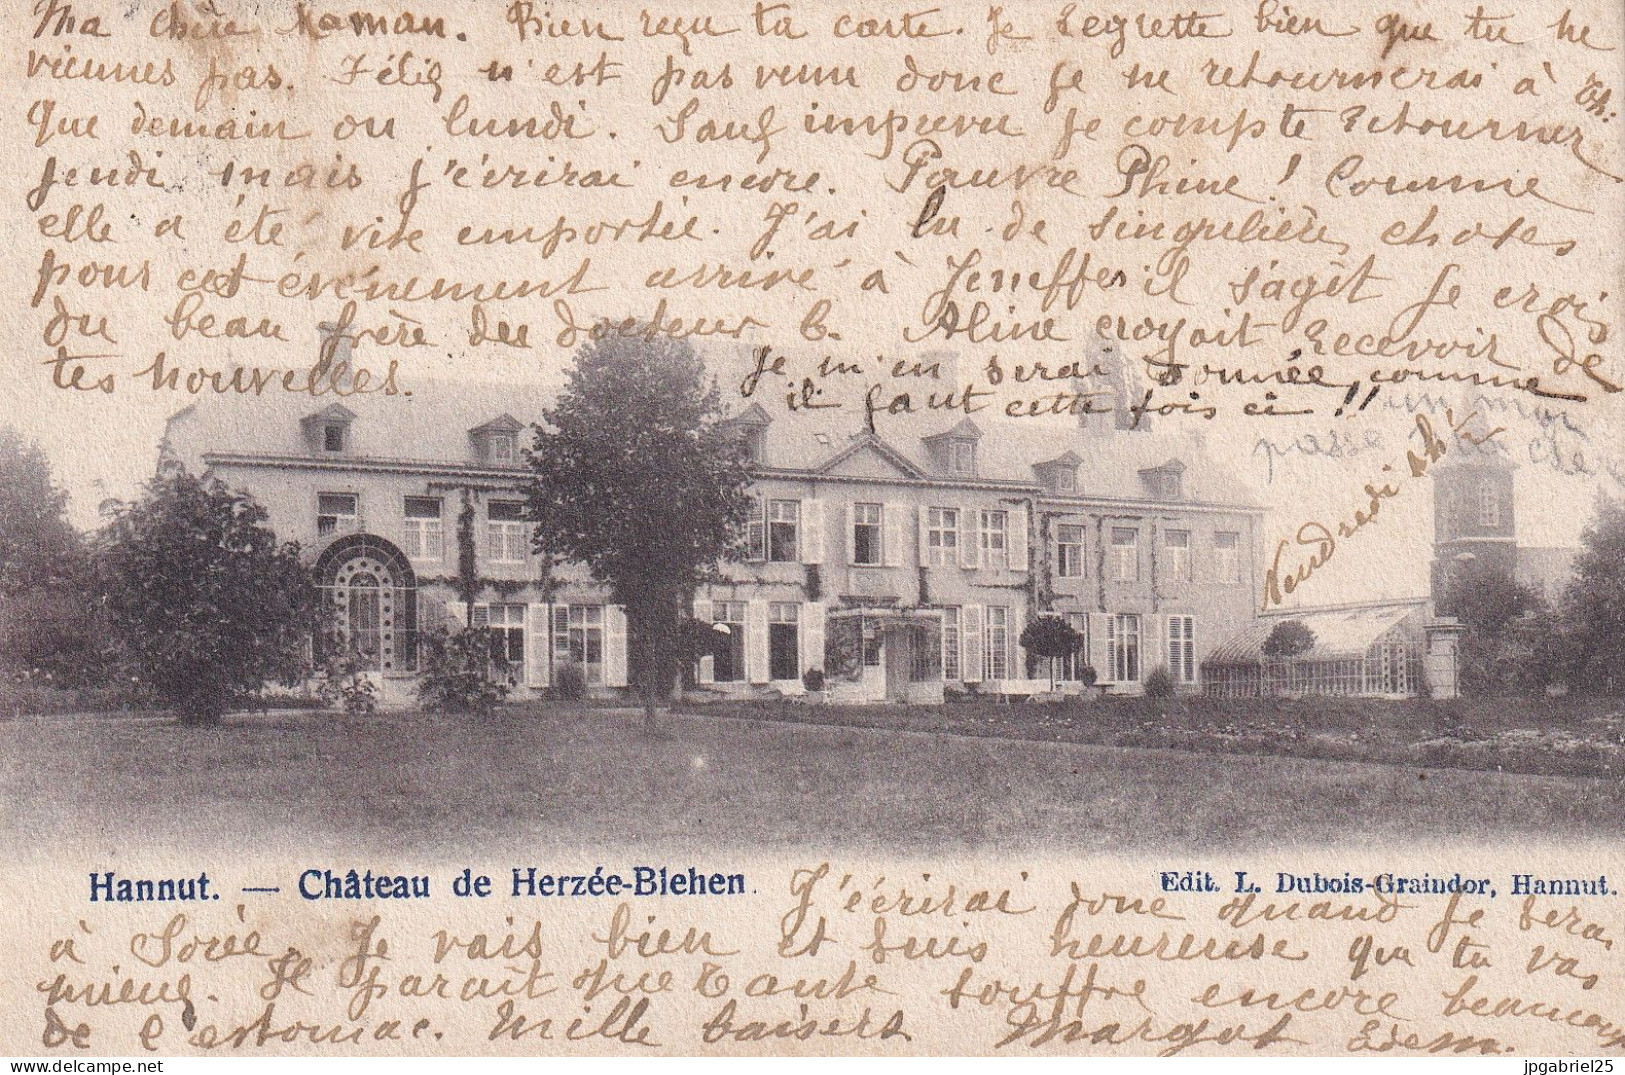 Ma chère Maman. Bien reçu ta carte. Je regrette bien que tu ne
viennes pas. Félix n'est pas venu donc je ne retournerai à Th.
que demain ou lundi. Sauf imprévu je compte retourner
jeudi mais j'écrirai encore. Pauvre Phine! Comme
elle a été vite emportée. J'ai lu de singulières choses
pour cet événement arrivé à Jeneffe il s'agit je crois
du beau frère du docteur b. Aline croyait recevoir de
tes nouvelles.
Je m'en serai donnée comme
il faut cette fois ci !!
un mot
passe
Vendredi
Hannut. — Château de Herzée-Blehen.
Edit. L. Dubois-Graindor, Hannut.
J'écrirai donc quand je serai
à Sorée. Je vais bien et suis heureuse que tu vas
mieux. Il parait que Tante souffre encore beaucoup
de l'estomac. Mille baisers Margot Idem.
jpgabriel25